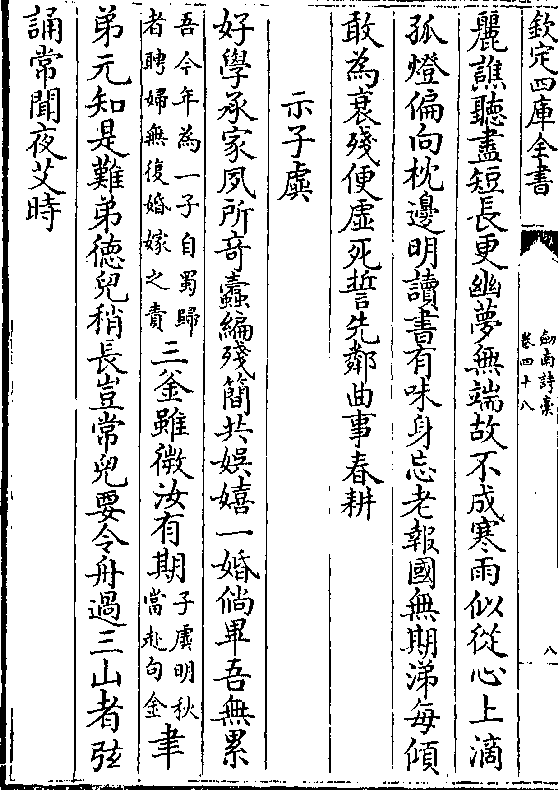 欽定四庫全書
劍南詩稾
卷四十八
八
麗譙聽盡短長更幽夢無端故不成寒雨似從心上滴
孤燈偏向枕邊明讀書有味身忘老報國無期涕每傾
敢為衰殘便虛死誓先鄰曲事春耕
示子虡
好學承家夙所竒蠧編殘簡共娯嬉一婚倘畢吾無累
吾今年為一子自蜀歸
者聘婦無復婚嫁之責
三釜雖微汝有期
子虡明秋
當赴句金
聿
弟元知是難弟德兒稍長豈常兒要令舟過三山者弦
誦常聞夜艾時